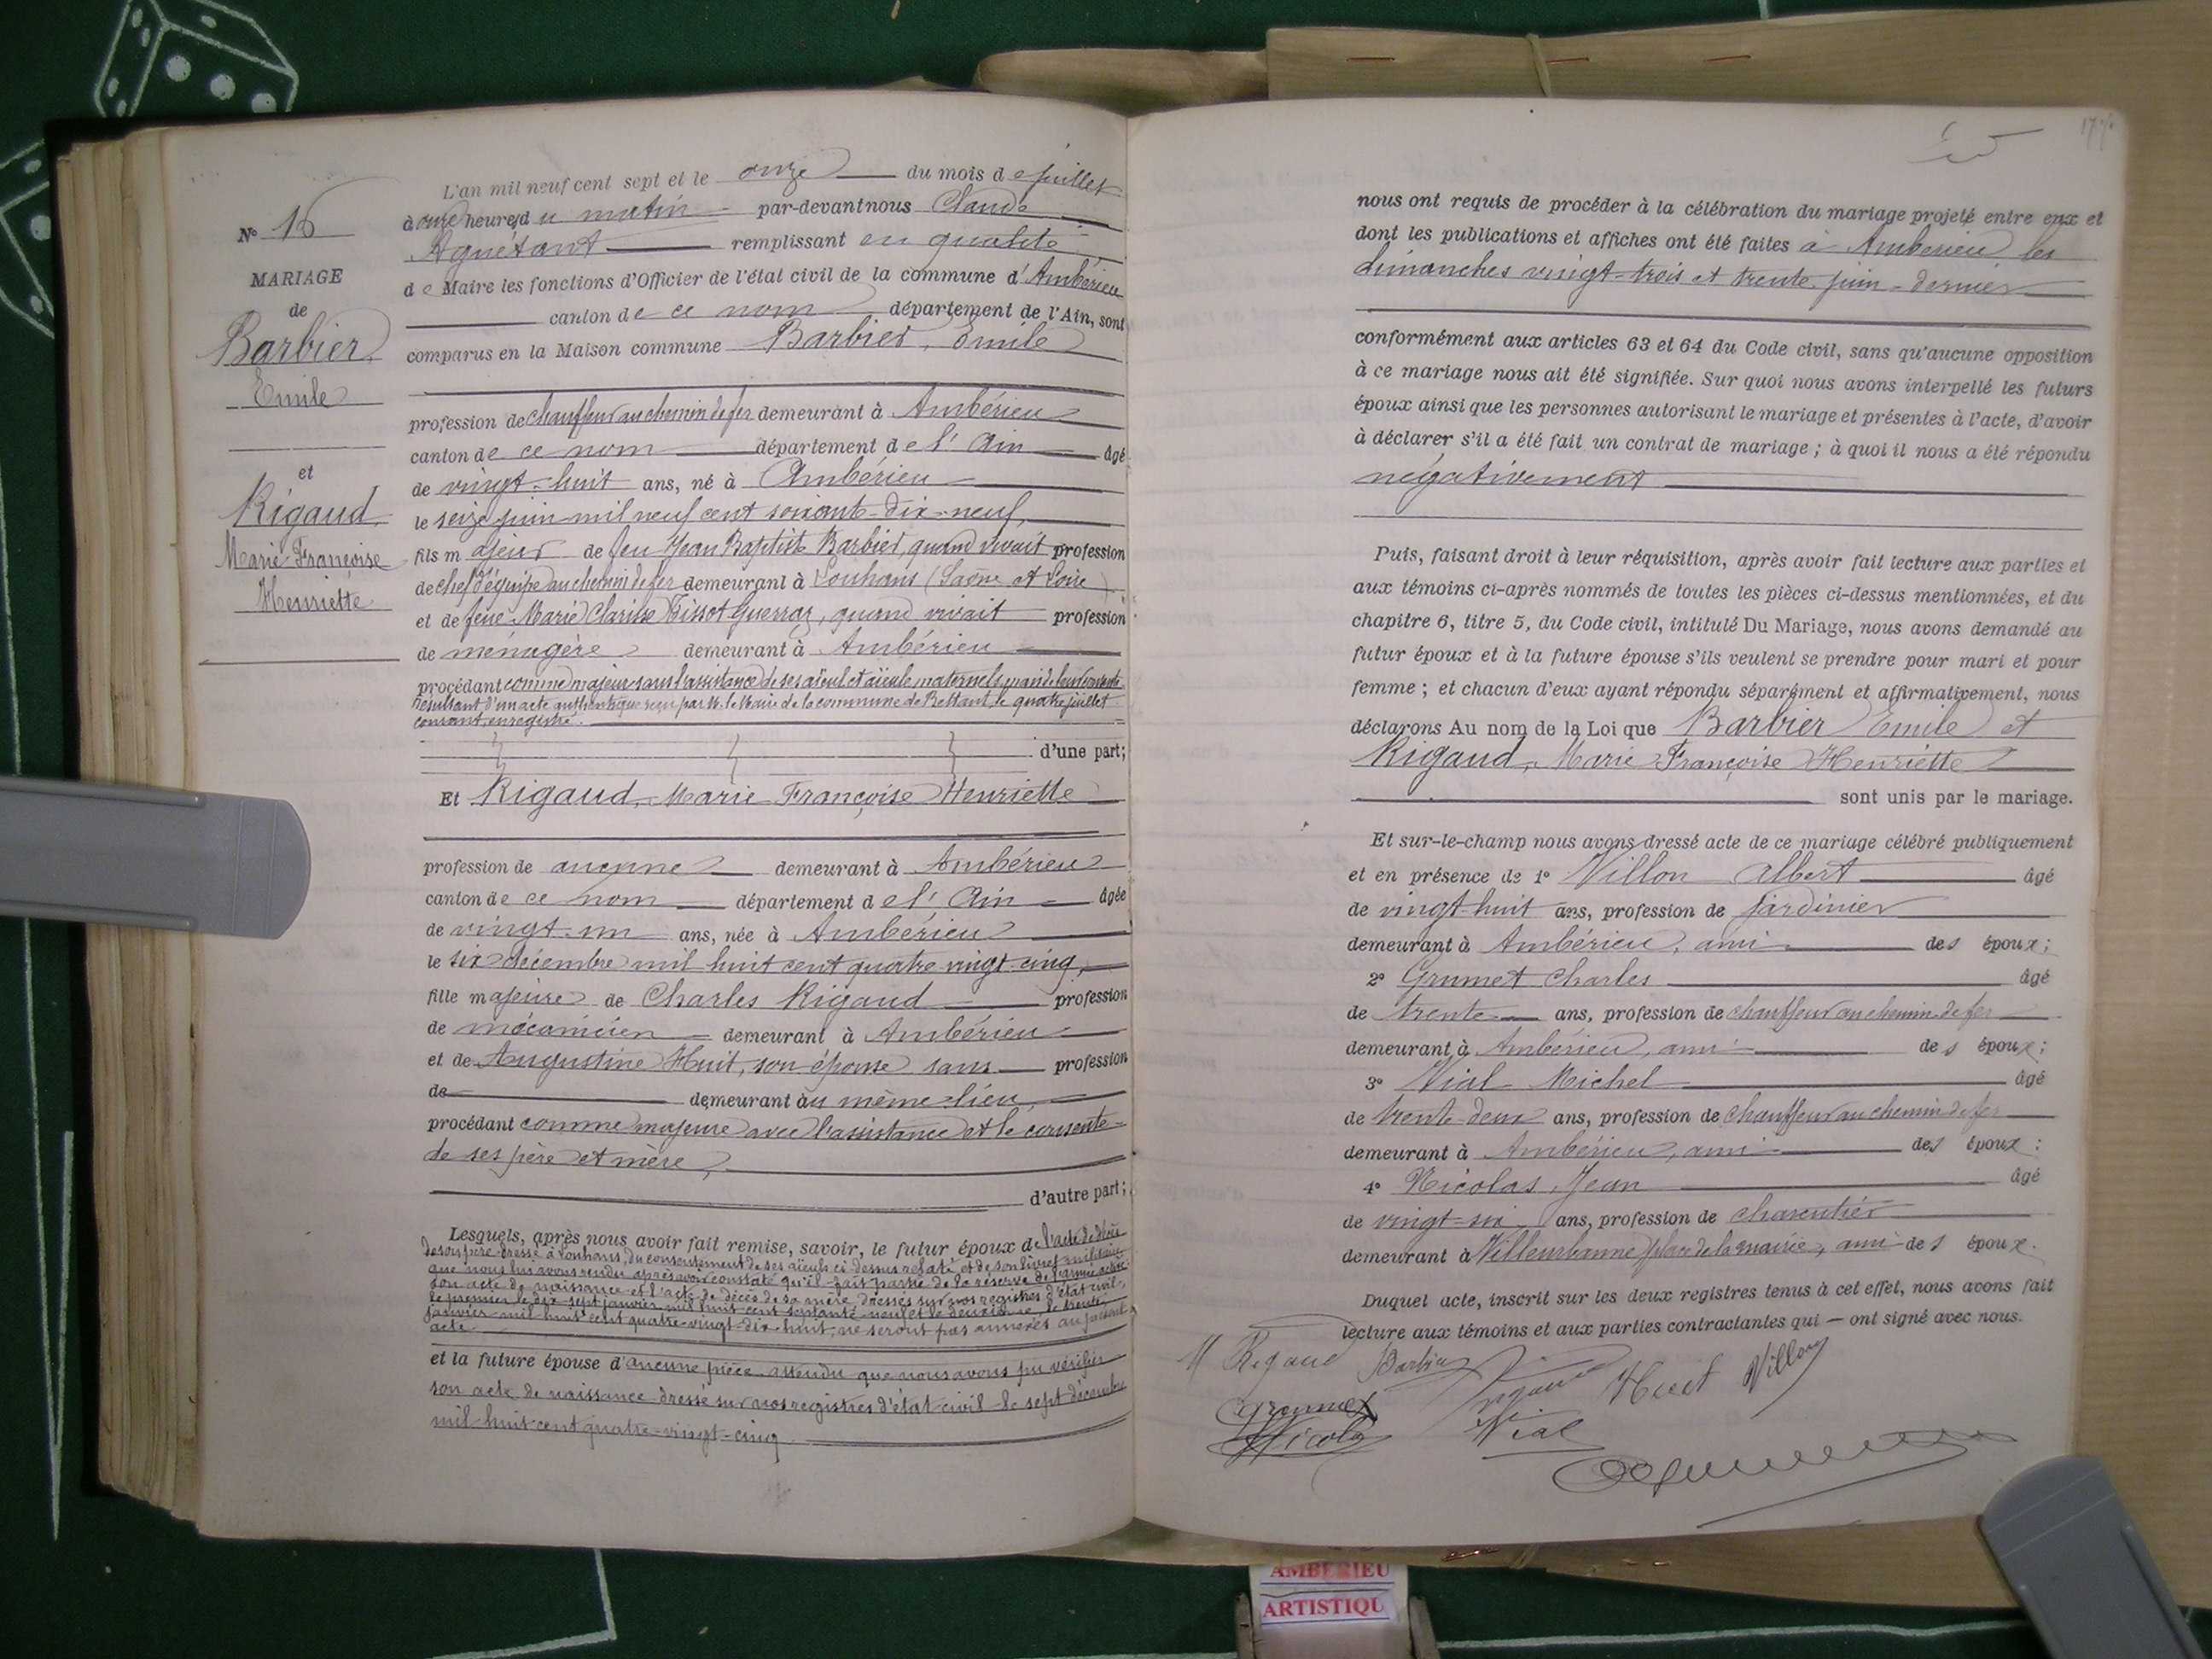 N° 16
MARIAGE
de
Barbier
Emile
et
Rigaud
Marie Françoise
Henriette
L'an mil neuf cent sept et le onze du mois de juillet
à onze heures du matin par-devant nous Claude
Aguétant remplissant en qualité
de Maire les fonctions d'Officier de l'état civil de la commune d'Ambérieu
canton de ce nom département de l'Ain, sont
comparus en la Maison commune Barbier, Emile
profession de chauffeur au chemin de fer demeurant à Ambérieu
canton de ce nom département de l'Ain âgé
de vingt-huit ans, né à Ambérieu
le seize juin mil neuf cent soixante-dix-neuf,
fils majeur de feu Jean Baptiste Barbier, quand vivait profession
de chef d'équipe au chemin de fer demeurant à Louhans (Saône et Loire)
et de feue Marie Clarisse Tissot Guerraz, quand vivait profession
de ménagère demeurant à Ambérieu
procédant comme majeur sans l'assistance de ses aïeul et aïeule maternels, mais de leur consente
résultant d'un acte authentique reçu par M. le Maire de la commune de Bettant, le quatre juillet
courant, enregistré.
d'une part;
Et Rigaud, Marie Françoise Henriette
profession de aucune demeurant à Ambérieu
canton de ce nom département de l'Ain âgée
de vingt-un ans, née à Ambérieu
le six décembre mil huit cent quatre vingt-cinq,
fille majeure de Charles Rigaud profession
de mécanicien demeurant à Ambérieu
et de Augustine Huit, son épouse sans profession
de demeurant au même lieu,
procédant comme majeure avec l'assistance et le consente-
de ses père et mère,
d'autre part;
Lesquels, après nous avoir fait remise, savoir, le futur époux de l'acte de décès
de son père dressé à Louhans, du consentement de ses aïeuls ci-dessus relaté, et de son livret militaire
que nous lui avons rendu après avoir constaté qu'il fait partie de la réserve de l'armée active
son acte de naissance et l'acte de décès de sa mère dressés sur nos registres d'état civil,
le premier le dix-sept janvier mil huit cent septante-neuf et le deuxième le trente
janvier mil huit cent quatre-vingt-dix-huit, ne seront pas annexés au présent
acte
et la future épouse d'aucune pièce attendu que nous avons pu vérifier
son acte de naissance dressé sur nos registres d'état civil le sept décembre
mil huit cent quatre-vingt-cinq
nous ont requis de procéder à la célébration du mariage projeté entre eux et
dont les publications et affiches ont été faites à Ambérieu les
dimanches vingt-trois et trente juin dernier
conformément aux articles 63 et 64 du Code civil, sans qu'aucune opposition
à ce mariage nous ait été signifiée. Sur quoi nous avons interpellé les futurs
époux ainsi que les personnes autorisant le mariage et présentes à l'acte, d'avoir
à déclarer s'il a été fait un contrat de mariage ; à quoi il nous a été répondu
négativement
Puis, faisant droit à leur réquisition, après avoir fait lecture aux parties et
aux témoins ci-après nommés de toutes les pièces ci-dessus mentionnées, et du
chapitre 6, titre 5, du Code civil, intitulé Du Mariage, nous avons demandé au
futur époux et à la future épouse s'ils veulent se prendre pour mari et pour
femme ; et chacun d'eux ayant répondu séparément et affirmativement, nous
déclarons Au nom de la Loi que Barbier Emile et
Rigaud, Marie Françoise Henriette
sont unis par le mariage.
Et sur-le-champ nous avons dressé acte de ce mariage célébré publiquement
et en présence de 1° Villon Albert âgé
de vingt-huit ans, profession de jardinier
demeurant à Ambérieu, ami des époux;
2° Grumet Charles âgé
de trente ans, profession de chauffeur au chemin de fer
demeurant à Ambérieu, ami des époux;
3° Vial Michel âgé
de trente-deux ans, profession de chauffeur au chemin de fer
demeurant à Ambérieu, ami des époux;
4° Nicolas Jean âgé
de vingt-six ans, profession de charcutier
demeurant à Villeurbanne, place de la mairie, ami des époux.
Duquel acte, inscrit sur les deux registres tenus à cet effet, nous avons fait
lecture aux témoins et aux parties contractantes qui — ont signé avec nous.
M Rigaud Barbier Rigaud Huit Villon
Grumet
Nicolas Vial
AMBERIEU
ARTISTIQU